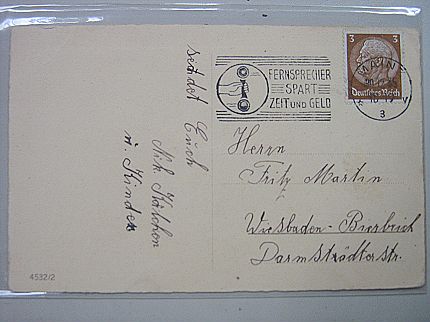 sendet Euch
Kätchen
u. Kinder
FERNSPRECHER
SPART
ZEIT UND GELD
3 3
Deutsches Reich
3
Herrn
Fritz Martin
Wiesbaden-Bierbrich
Darmstädterstr.
4532/2